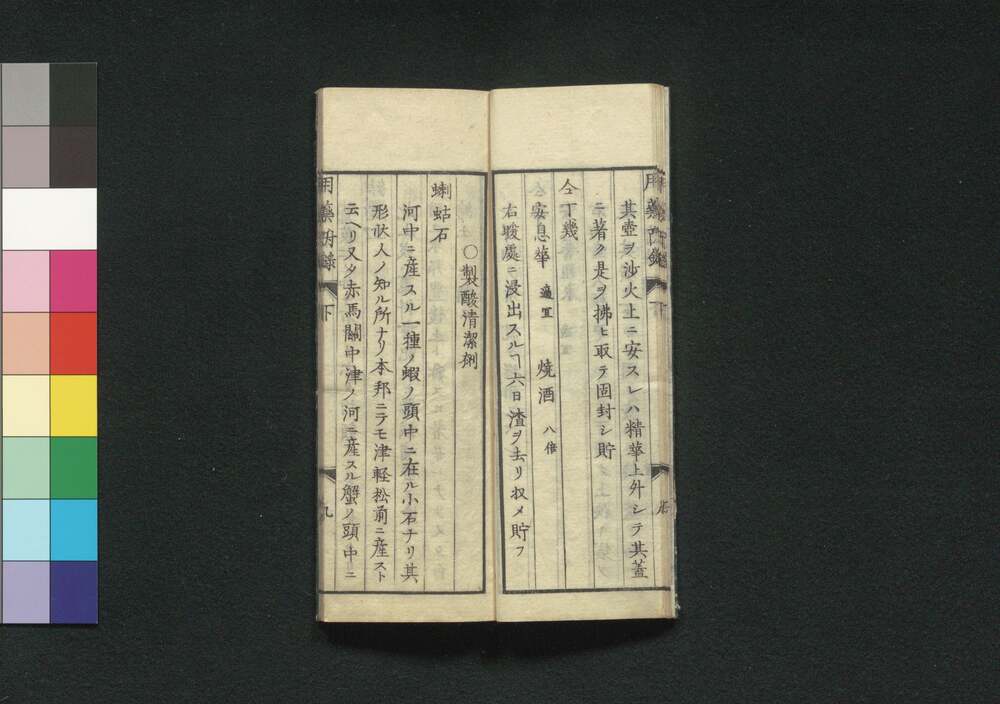 其壺ヲ沙火上ニ安スレハ精華上升シテ其蓋
ニ著ク是ヲ拂ヒ取テ固封シ貯
仝丁幾
安息華 適宜 燒酒 八倍
右暖處ニ浸出スルヿ六日渣ヲ去リ收メ貯フ
○製酸清潔劑
蝲蛄石
河中ニ産スル一種ノ蝦ノ頭中ニ在ル小石ナリ其
形狀人ノ知ル所ナリ本邦ニテモ津軽松前ニ産スト
云ヘリ又タ赤馬關中津ノ河ニ産スル蟹ノ頭中ニ
用藥附録 下 九